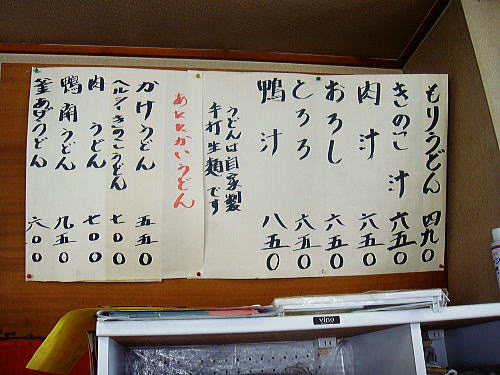 もりうどん 四九〇
きのこ汁 六五〇
肉汁 六五〇
おろし 六五〇
とろろ 六五〇
鴨汁 八五〇
うどんは自家製
手打生麺です
あたたかいうどん
かけうどん 五五〇
ヘルシーきのこうどん 七〇〇
肉うどん 七〇〇
鴨南うどん 九五〇
釜あげうどん 六〇〇
ving